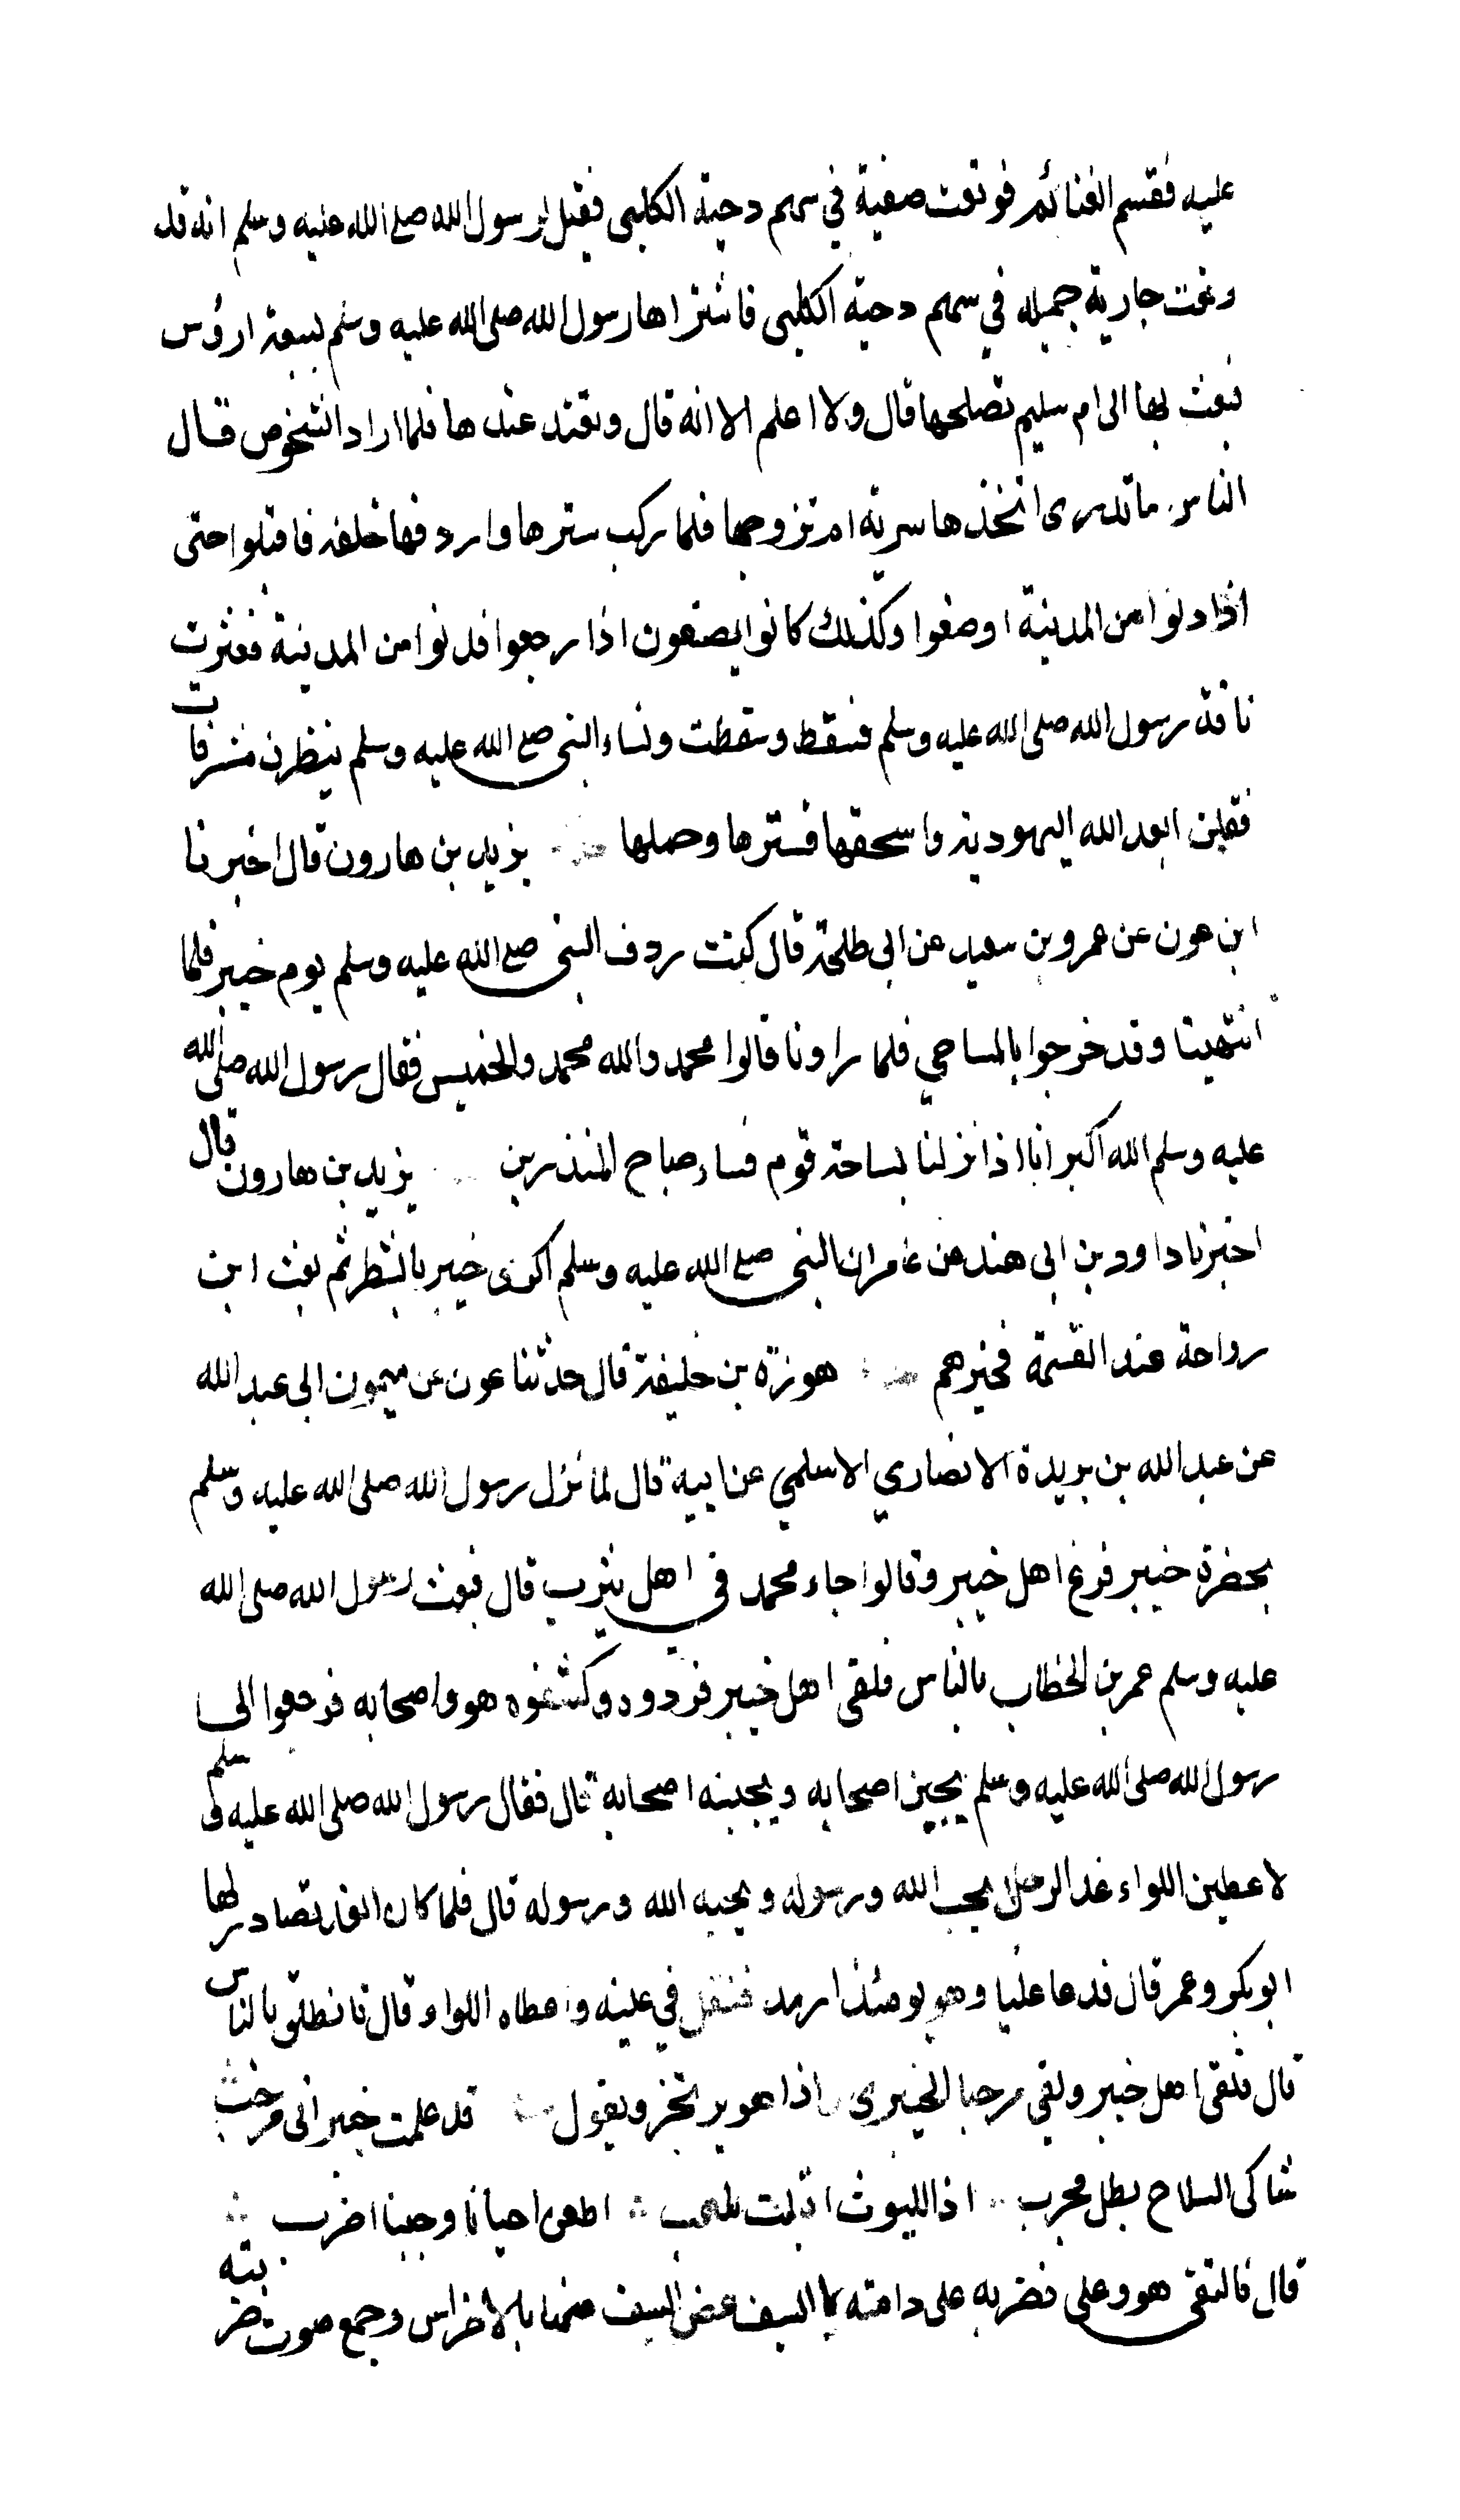 عليه فقسم الغنائم فوقعت صفية في سهم دحية الكلبى فقيل لرسول الله صلى الله عليه وسلم انه قد
وقعت جارية جميلة في سهم دحية الكلبى فاشتراها رسول الله صلى الله عليه وسلم بسبعة ارؤس
فبعث بها الى ام سليم تصلحها قال ولا اعلم الا انه قال وتعتد عندها فلما اراد الشخوص قال
الناس ما ندرى اتخذها سرية ام تزوجها فلما ركب سترها واردفها خلفه فاقبلوا حتى
اذا دنوا من المدينة اوضعوا وكذلك كانوا يصنعون اذا رجعوا فدنوا من المدينة فعثرت
ناقة رسول الله صلى الله عليه وسلم فسقط وسقطت ونساء النبى صلى الله عليه وسلم ينظرن مشرفات
فقلن ابعد الله اليهودية واسحقها فسترها وحملها يزيد بن هارون قال اخبرنا
ابن عون عن عمرو بن سعيد عن ابى طلحة قال كنت ردف النبى صلى الله عليه وسلم يوم خيبر فلما
انتهينا وقد خرجوا بالمساحي فلما راونا قالوا محمد والله محمد والخميس فقال رسول الله صلى الله
عليه وسلم الله اكبر انا اذا نزلنا بساحة قوم فساء صباح المنذرين يزيد بن هارون قال
اخبرنا داوود بن ابى هند عن عامر ان النبى صلى الله عليه وسلم اكرى خيبر بالشطر ثم بعث ابن
رواحة عند القسمة فخيرهم هوزة بن خليفة قال حدثنا عون عن ميمون ابى عبد الله
عن عبد الله بن بريدة الانصاري الاسلمي عن ابيه قال لما نزل رسول الله صلى الله عليه وسلم
بحضرة خيبر فزع اهل خيبر وقالوا جاء محمد فى اهل يثرب قال فبعث رسول الله صلى الله
عليه وسلم عمر بن الخطاب بالناس فلقى اهل خيبر فردوه وكشفوه هو واصحابه فرجعوا الى
رسول الله صلى الله عليه وسلم يجبن اصحابه ويجبنه اصحابه قال فقال رسول الله صلى الله عليه وسلم
لاعطين اللواء غدا لرجلا يحب الله ورسوله ويحبه الله ورسوله قال فلما كان الغد تصادر لها
ابوبكر وعمر قال فدعا عليا وهو يومئذ ارمد فتفل في عينه واعطاه اللواء قال فانطلق بالناس
قال فلقى اهل خيبر ولقي مرحبا الخيبرى واذا هو يرتجز ويقول قد علمت خيبر انى مرحب
شاكى السلاح بطل مجرب اذا الليوث اقبلت تلهب اطعن احيانا وحينا اضرب
قال فالتقى هو وعلى فضربه على هامته بالسيف عض السيف منها بالاضراس وسمع صوت ضربته